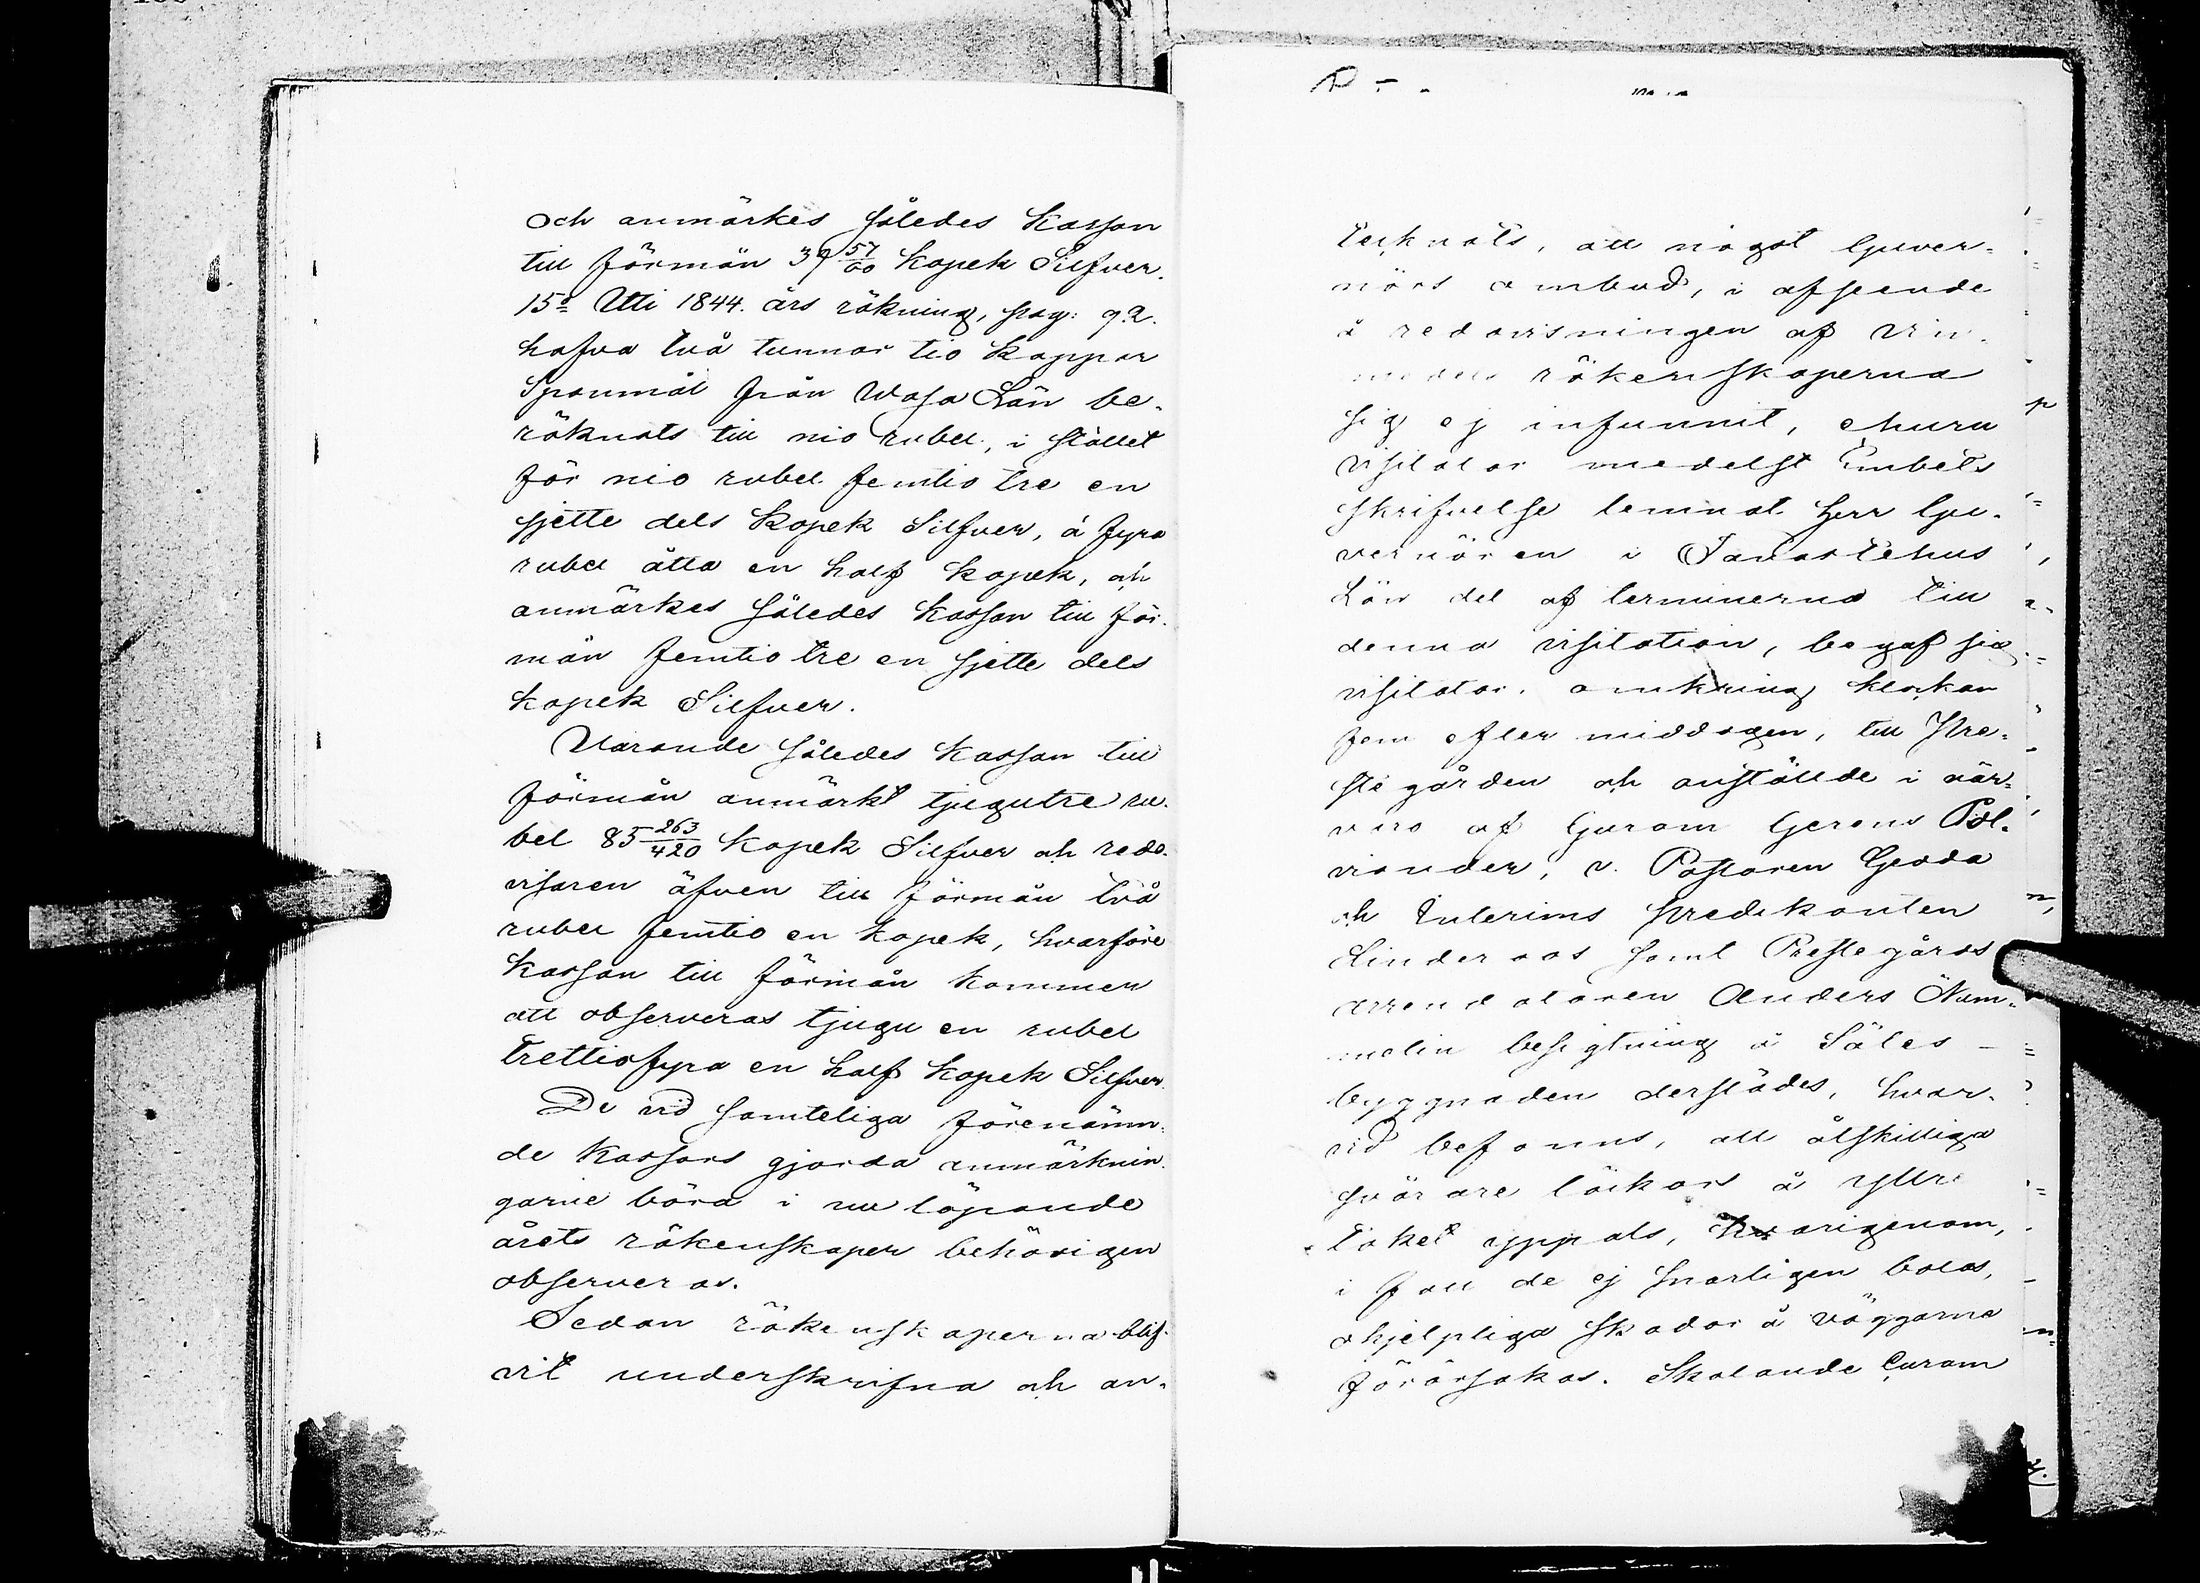 och anmärkes således Kassan
till förmån 39 57/60 Kopek Silfver.
15º Uti 1844. års räkning, pag: 92.
hafva två tunnor tio Kappar
Spanmål från Wasa Län be-
räknats till nio rubel, i stället
för nio rubel femtio tre en
sjette dels Kopek Silfver, á fyra
rubel åtta en half Kopek, och
anmärkes således Kassan till för-
mån femtio tre en sjette dels
Kopek Silfver.
Varande således Kassan till
förmån anmärkt tjugutre ru-
bel 85 263/420 Kopek Silfver och redo-
visaren äfven till förmån två
rubel femtio en kopek, hvarföre
Kassan till förmån kommer
att observeras tjugu en rubel
trettiofyra en half Kopek Silfver.
De vid samteliga förenämn-
de Kassors gjorda anmärknin-
garne böra i nu löpande
årets räkenskaper behörigen
observeras.
Sedan räkenskaperna blif-
vit underskrifna och an-
tecknats, att något Guver-
nörs ombud, i afseende
å redovisningen af vin-
räkenskaperna
sig ej infunnit, ehuru
visitator medelst Embets
skrifvelse lemnat Herr Gu-
vernören i Tavastehus
Län del af terminerna till
denna visitation, begaf sig
visitator omkring klockan
fem efter middagen, till Pre-
stegården och anställde i när-
varo af Curam Gerens Pol-
viander, v. Pastoren Geoda
och Interims predikanten
Linderoos samt Prestegårds
arrendatoren Anders Num-
melin besigtning å Säles-
byggnaden derstädes, hvar-
vid befanns, att åtskilliga
svårare läckor å yttre
taket yppats, hvarigenom,
i fall de ej snarligen botas,
ohjelpliga skador å väggarne
förorsakas. Skolande Curam